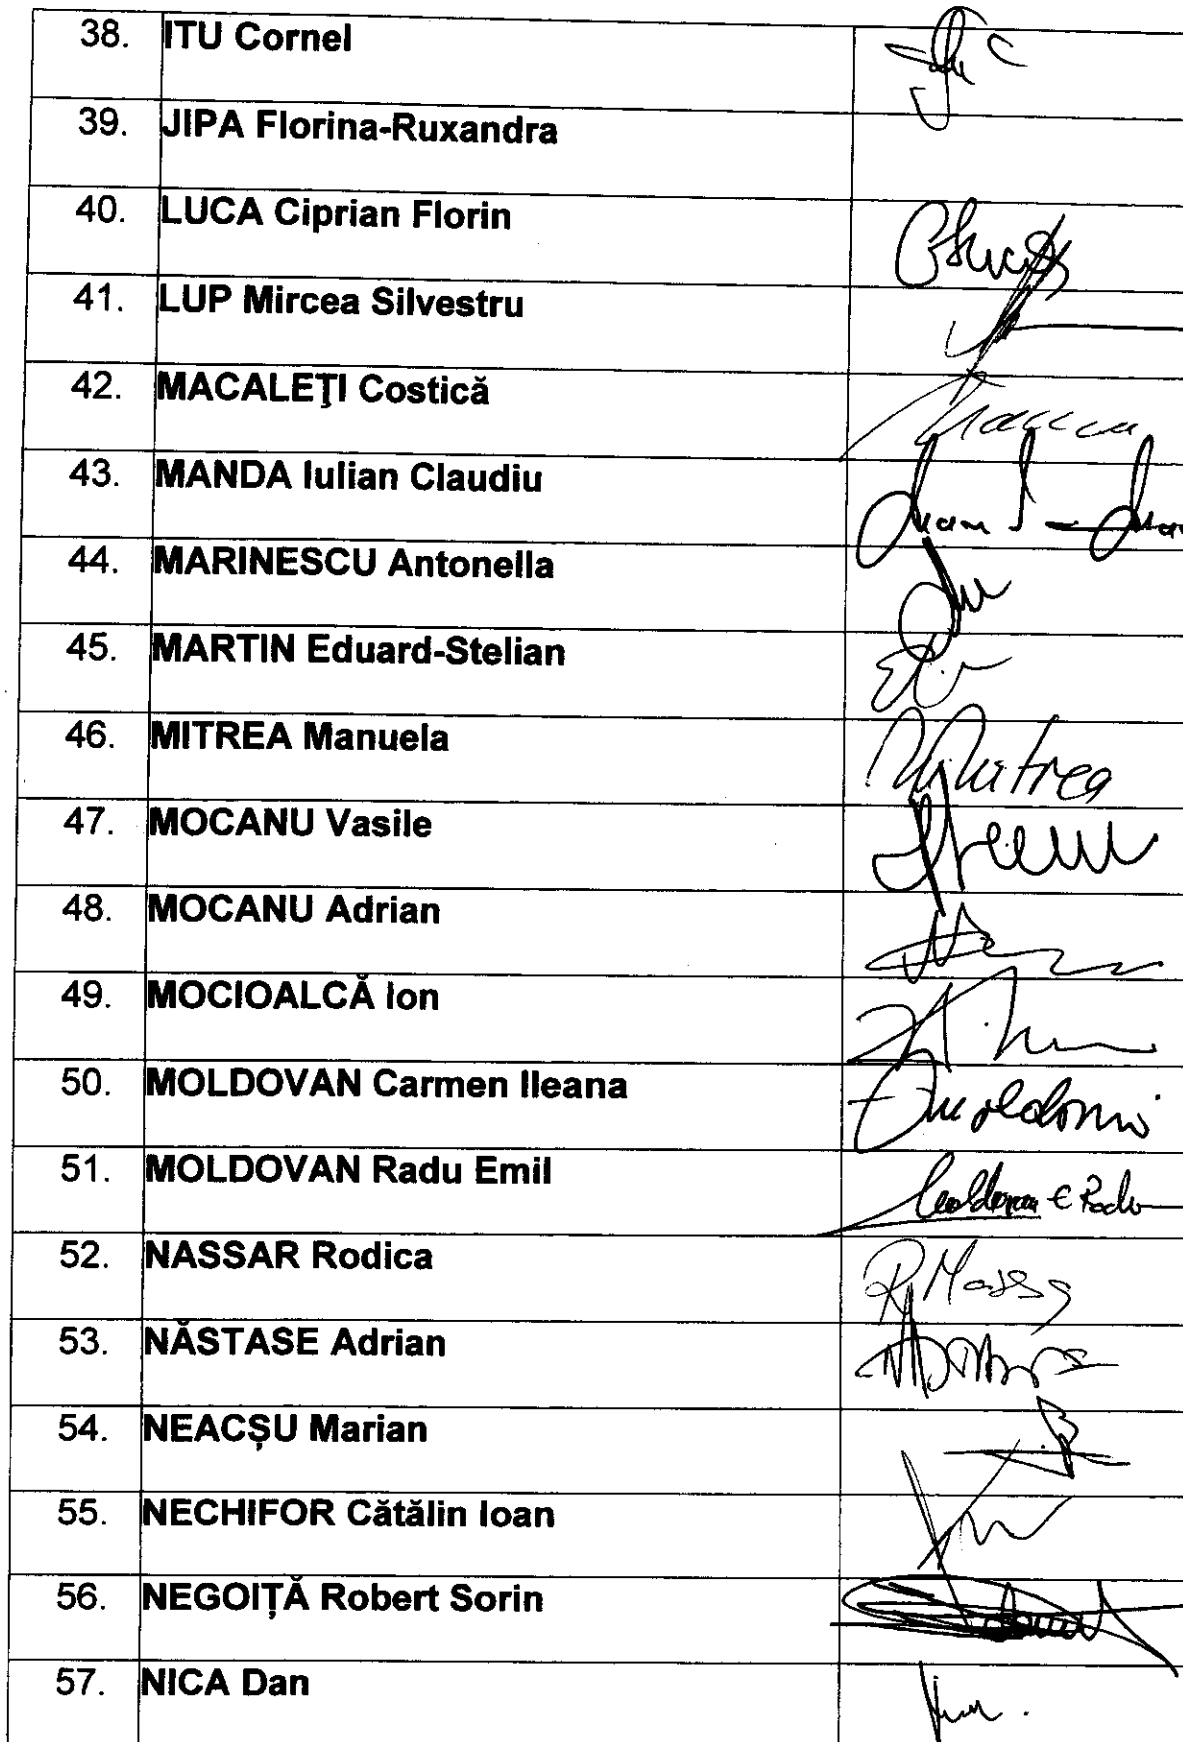 38. ITU Cornel
39. JIPA Florina-Ruxandra
40. LUCA Ciprian Florin
41. LUP Mircea Silvestru
42. MACALEŢI Costică
43. MANDA Iulian Claudiu
44. MARINESCU Antonella
45. MARTIN Eduard-Stelian
46. MITREA Manuela Mitrea
47. MOCANU Vasile
48. MOCANU Adrian
49. MOCIOALCĂ Ion
50. MOLDOVAN Carmen Ileana
51. MOLDOVAN Radu Emil Moldovan E Radu
52. NASSAR Rodica
53. NĂSTASE Adrian
54. NEACȘU Marian
55. NECHIFOR Cătălin Ioan
56. NEGOIȚĂ Robert Sorin
57. NICA Dan